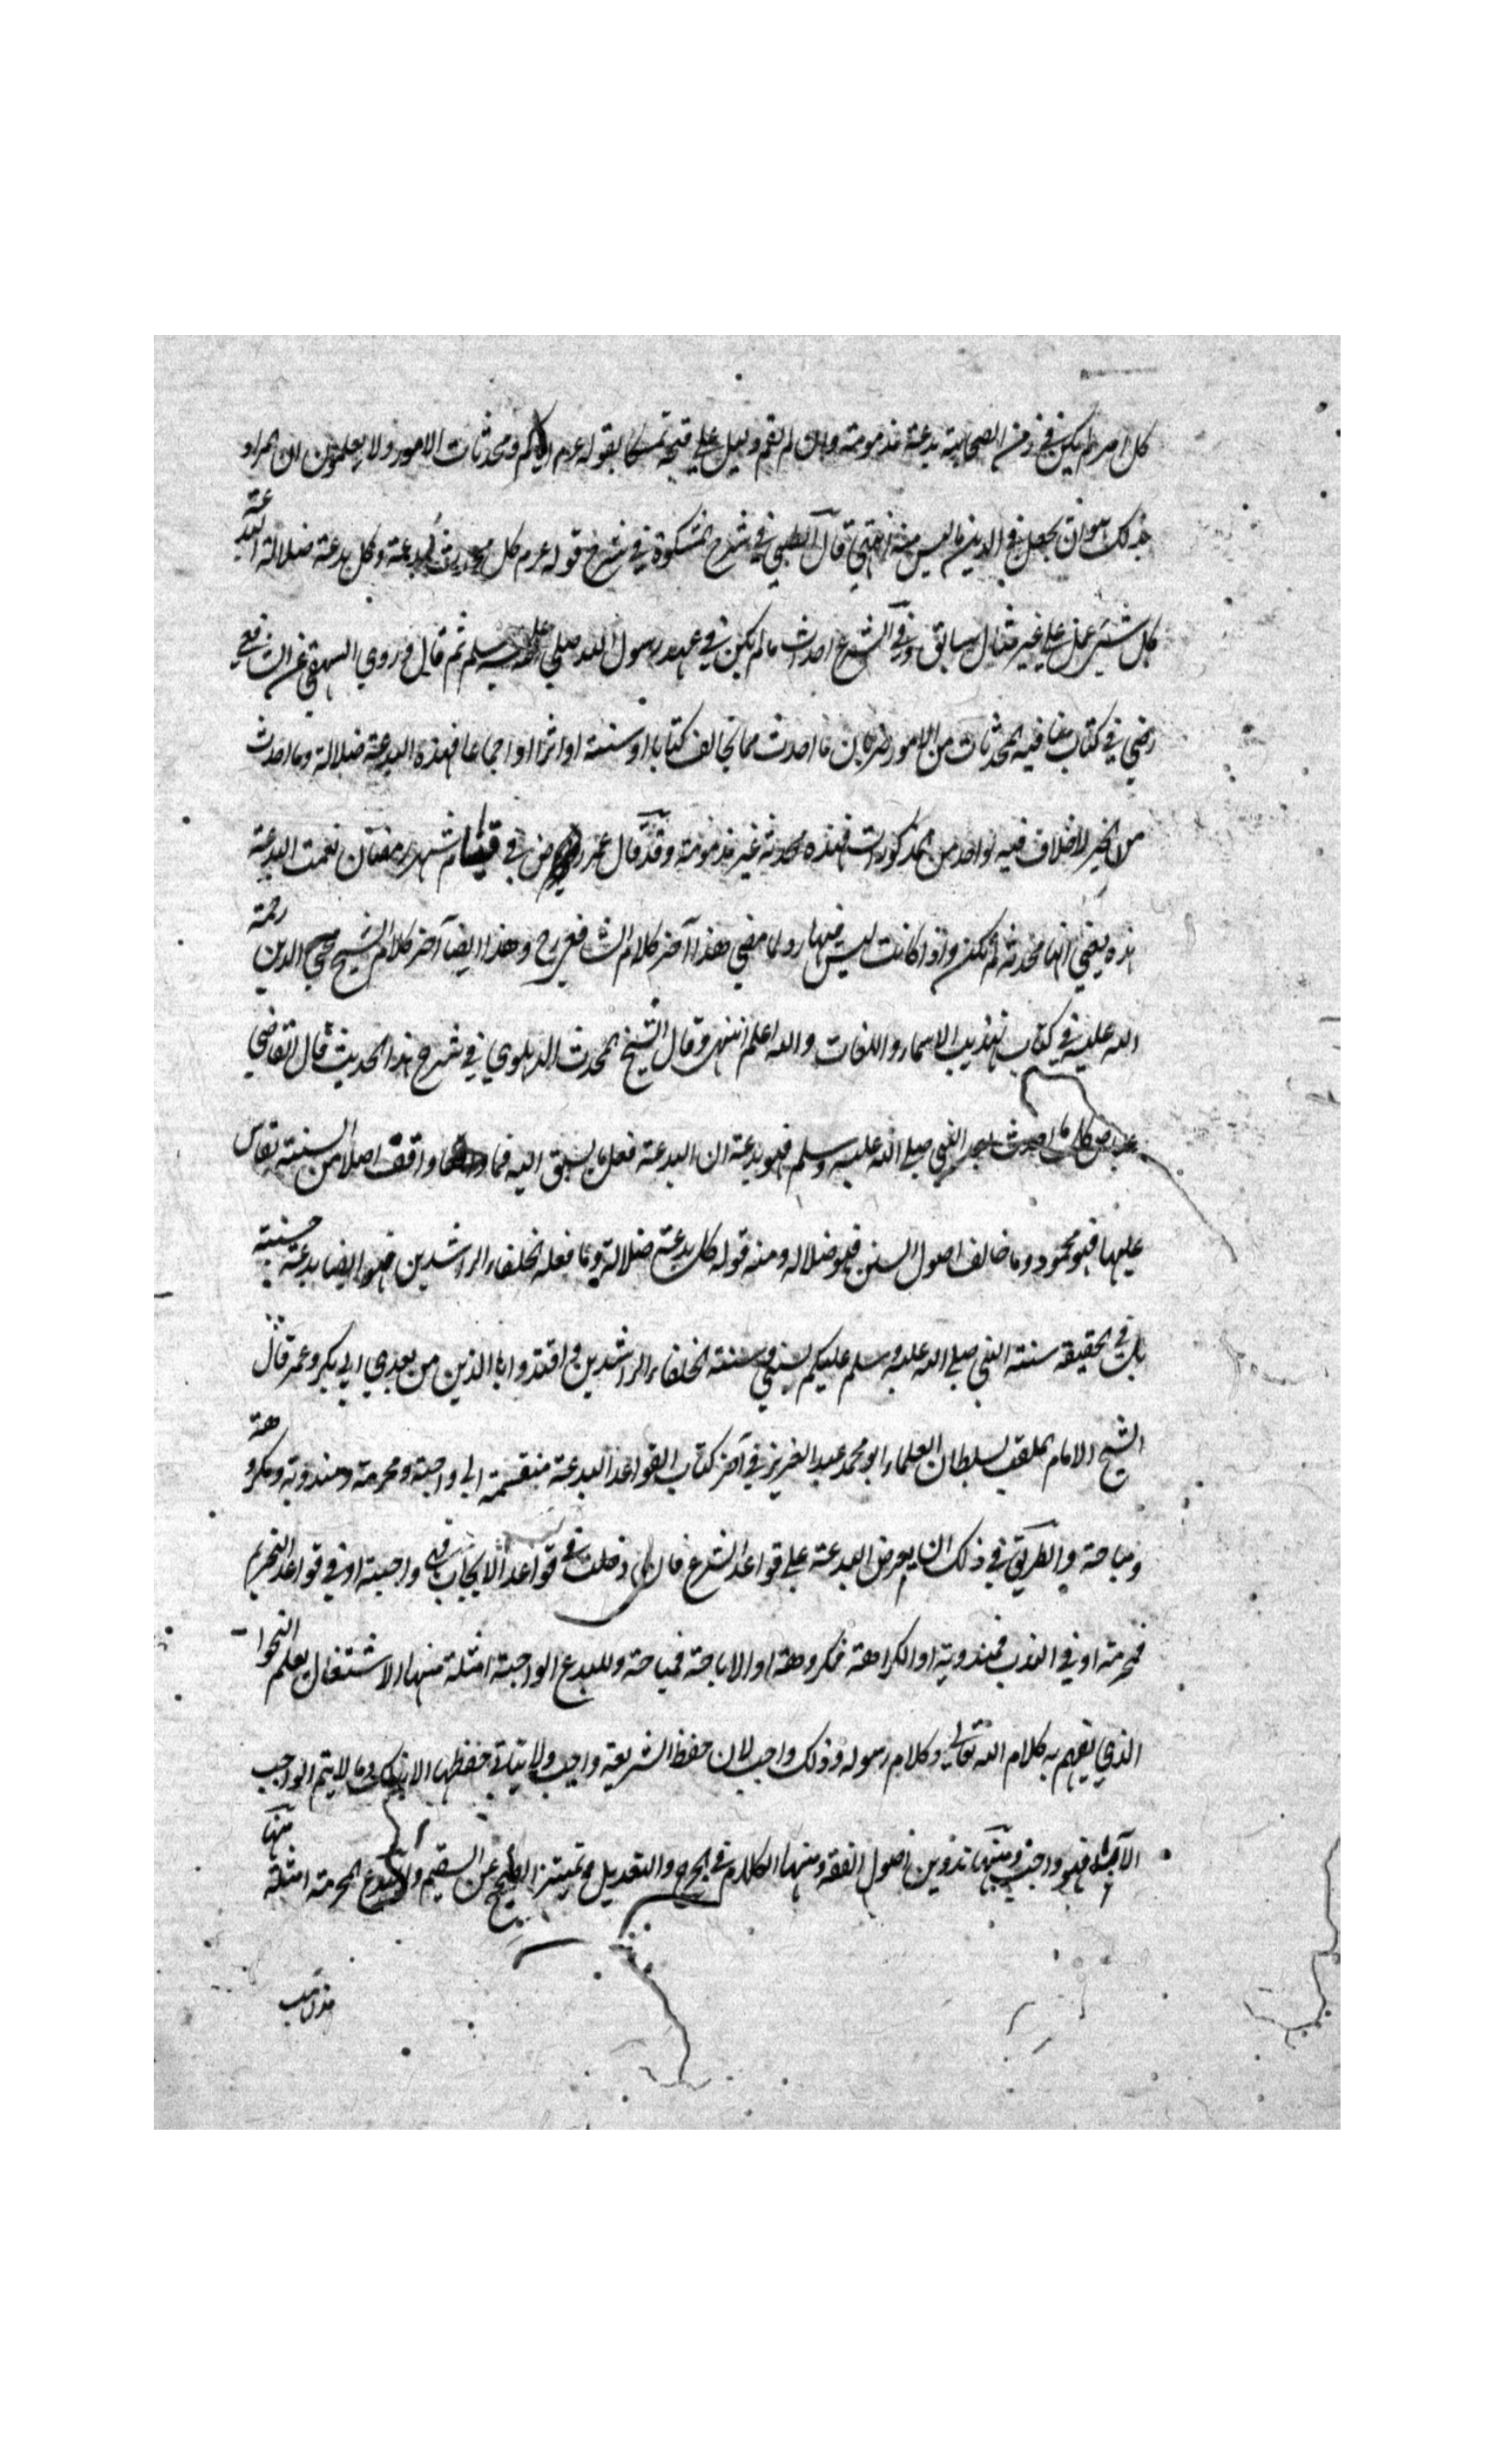 كل امر لم يكن في زمن الصحابة بدعة مذمومة وان لم يقم دليل علي قبحه تمسكا بقوله عم اياكم ومحدثات الامور ولا يعلمون ان المراد
بذلك هو ان يجعل في الدين ما ليس منه انتهي قال الطيبي في شرح المشكوة في شرح قوله عم كل محدثة بدعة وكل بدعة ضلالة البدعة
كل شئ عمل علي غير مثال سابق وفي الشرع احداث ما لم يكن في عهد رسول الله صلي الله عليه وسلم ثم قال وروي البيهقي عن الشافعي
رضي في كتاب مناقبه المحدثات من الامور ضربان ما احدث مما يخالف كتابا او سنة او اثرا او اجماعا فهذه البدعة ضلالة وما احدث
من الخير لا خلاف فيه لواحد من المذكورات فهذه محدثة غير مذمومة وقد قال عمر رض في قيام شهر رمضان نعمت البدعة
هذه يعني انها محدثة لم تكن واذا كانت ليس فيها رد لما مضي هذا آخر كلام الشافعي رح وهذا ايضا آخر كلام الشيخ محي الدين رحمة
الله عليه في كتاب تهذيب الاسماء واللغات والله اعلم انتهي وقال الشيخ المحدث الدهلوي في شرح هذا الحديث قال القاضي
عياض كل ما احدث بعد النبي صلي الله عليه وسلم فهو بدعة ان البدعة فعل ما لم يسبق اليه فما وافق اصلا من السنة يقاس
عليها فهو محمود وما خالف اصول السنن فهو ضلاله ومنه قوله كل بدعة ضلالة وما فعله الخلفاء الراشدين فهو ايضا بدعة حسنة
بل في الحقيقه سنة النبي صلي الله عليه وسلم عليكم بسنتي وسنة الخلفاء الراشدين واقتدوا بالذين من بعدي ابي بكر وعمر قال
الشيخ الامام الملقب بسلطان العلماء ابو محمد عبد العزيز في آخر كتاب القواعد البدعة منقسمة الي واجبة ومحرمة ومندوبة ومكروهة
ومباحة والطريق في ذلك ان يعرض البدعة علي قواعد الشرع فان دخلت في قواعد الايجاب فهي واجبة او في قواعد التحريم
فمحرمة او في الندب فمندوبة او الكراهة فمكروهة او الاباحة فمباحة وللبدع الواجبة امثلة منها الاشتغال بعلم النحو
الذي يفهم به كلام الله تعالي وكلام رسوله وذلك واجب لان حفظ الشريعة واجب ولا يتاتي حفظها الا بذلك وما لا يتم الواجب
الا به فهو واجب ومنها تدوين اصول الفقه ومنها الكلام في الجرح والتعديل وتمييز الصحيح عن السقيم وللبدع المحرمة امثلة منها
مذاهب